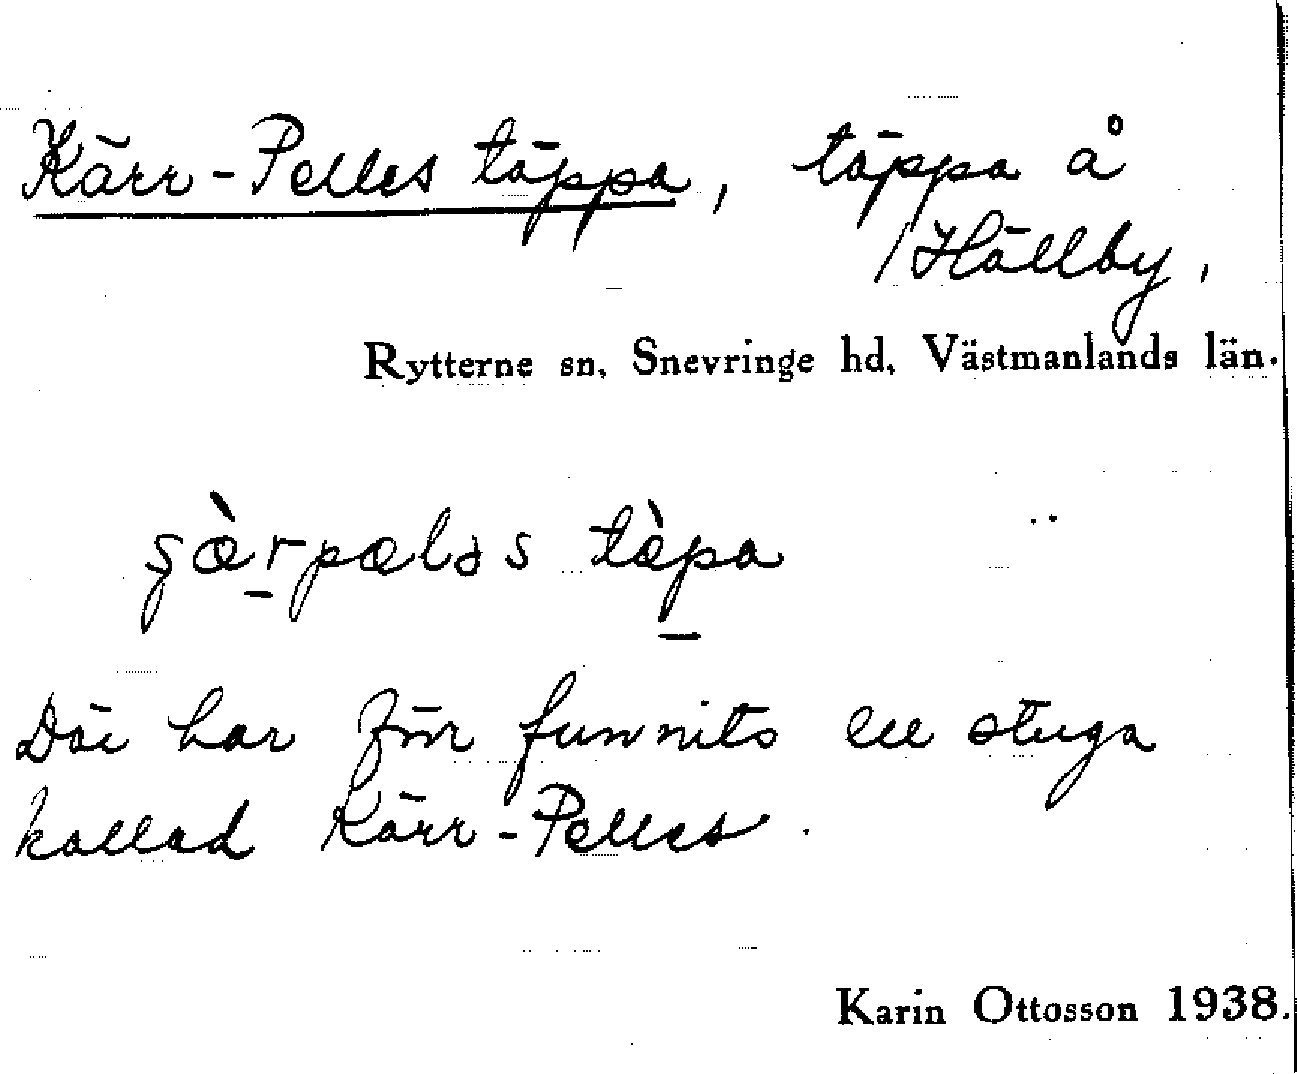 Kärr-Pelles täppa, täppa å
/Hällby,
Rytterne sn, Snevringe hd, Västmanlands län.
şæ̀r̲pæləs tæ̀p̲a
Där har förr funnits en stuga
kallad Kärr-Pelles.
Karin Ottosson 1938.